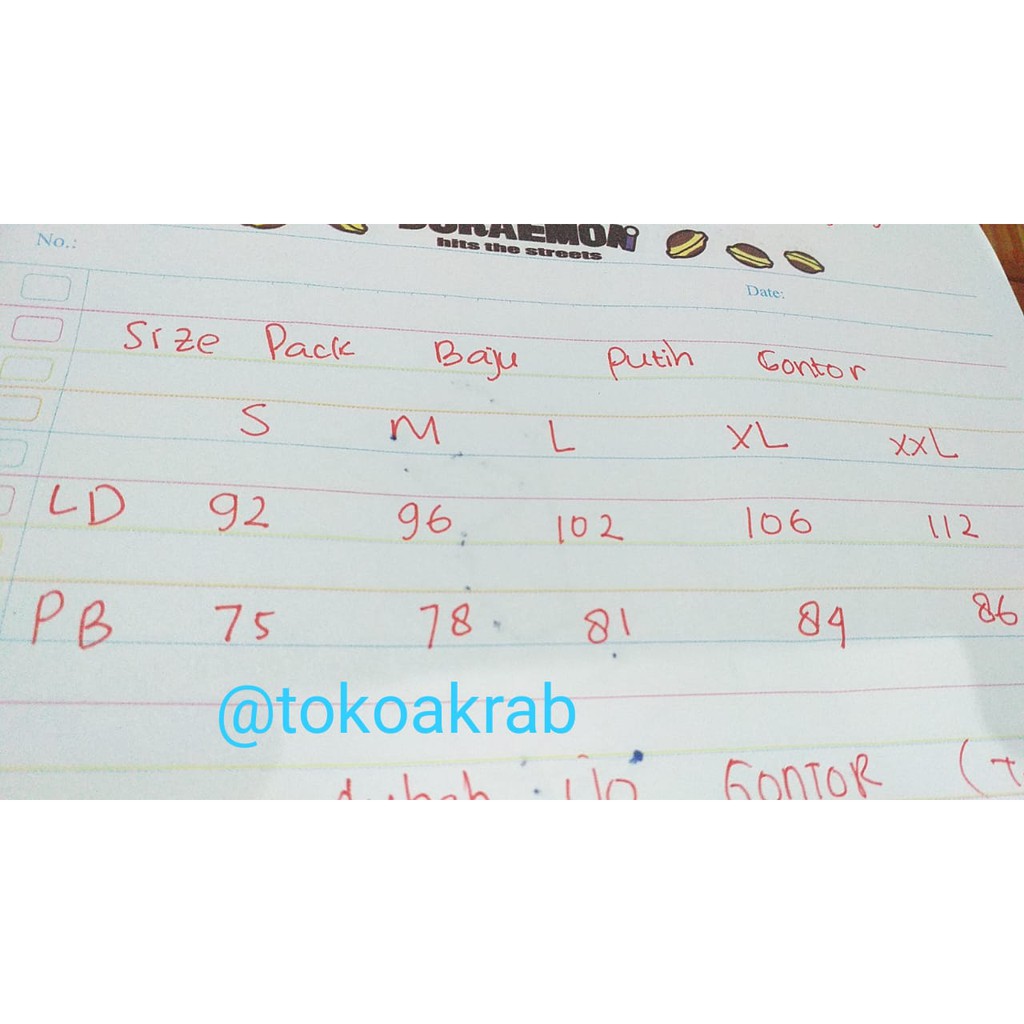 DORAEMON
hits the streets
No.:
Date:
Size Pack Baju Putih Gontor
S M L XL XXL
LD 92 96 102 106 112
PB 75 78 81 84 86
@tokoakrab
GONTOR (+